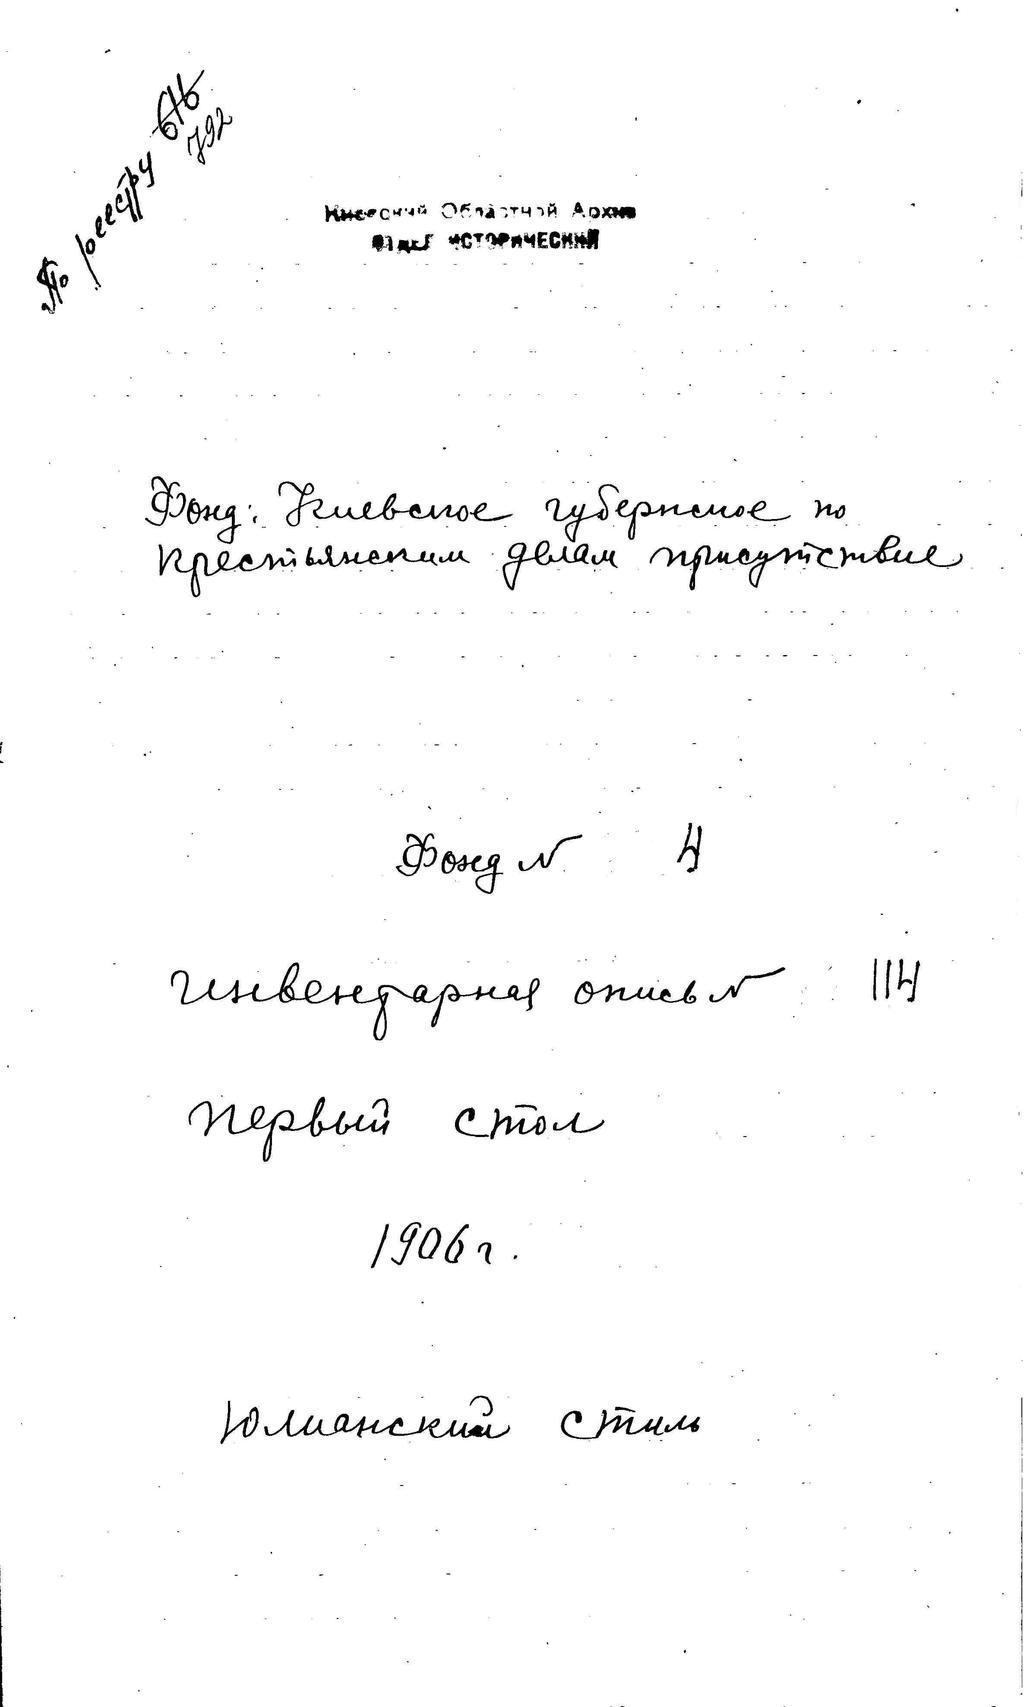 По реестру 616
792
Киевский Областной Архив
ОТДЕЛ ИСТОРИЧЕСКИЙ
Фонд: Киевское губернское по
крестьянским делам присутствие
Фонд № 4
Инвентарная опись № 114
Первый стол
1906 г.
Юлианский стиль